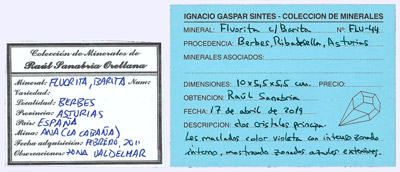 Colección de Minerales de
Raúl Sanabria Orellana
Mineral: FLUORITA, BARITA Num:
Variedad:
Localidad: BERBES
Provincia: ASTURIAS
País: ESPAÑA
Mina: ANA (LA CABAÑA)
Fecha adquisición: FEBRERO, 2011
Observaciones: ZONA VALDELMAR
IGNACIO GASPAR SINTES - COLECCION DE MINERALES
MINERAL: Fluorita c/Barita Nº: FLU-44
PROCEDENCIA: Berbes, Ribadesella, Asturias
MINERALES ASOCIADOS:
DIMENSIONES: 10x5,5x5,5 cm. PRECIO:
OBTENCION: Raúl Sanabria
FECHA: 17 de abril de 2019
DESCRIPCION: dos cristales principa-
les maclados color violeta con intenso zonado
interno, mostrando zonados azules exteriores.